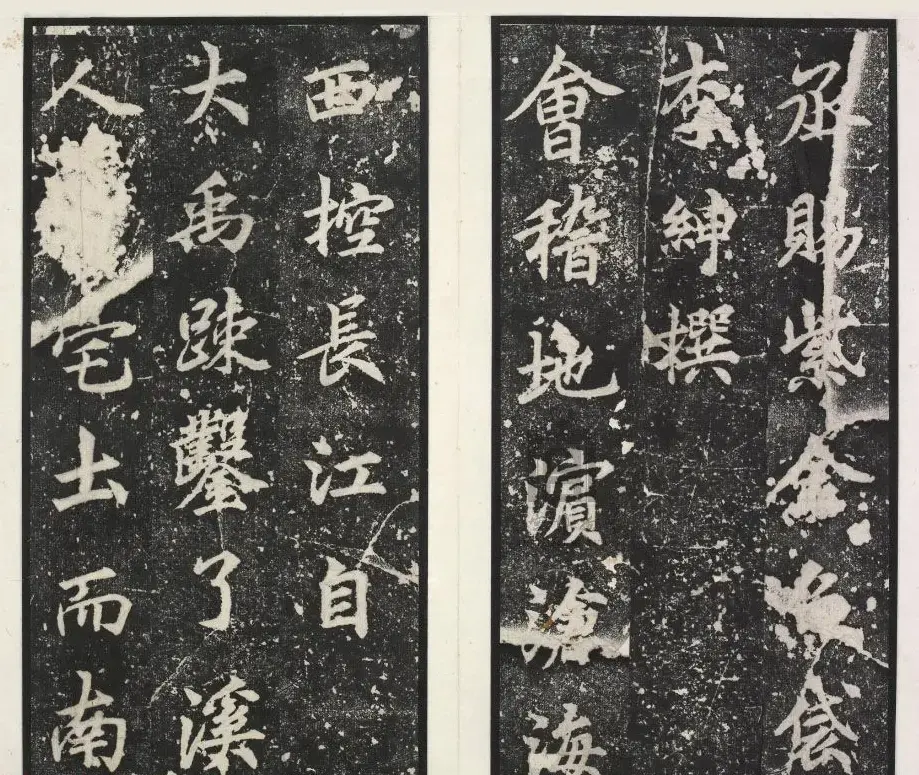 丞賜紫金魚袋
李紳撰
會稽地濵滄海
西控長江自
大禹疎鑿了溪
人宅土而南